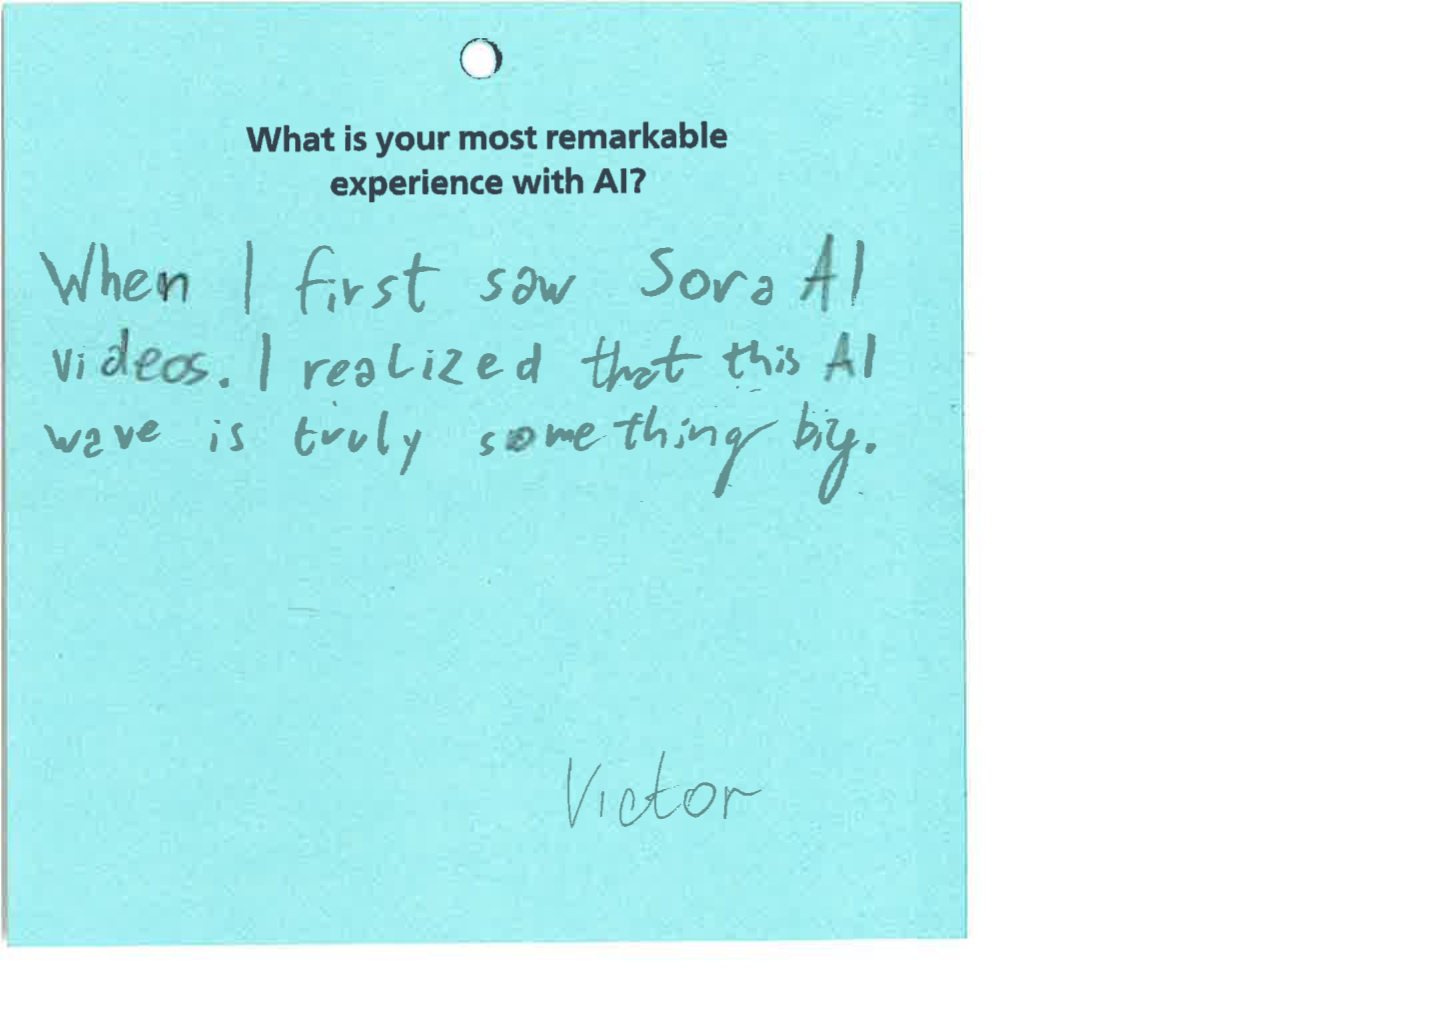 What is your most remarkable
experience with AI?
When I first saw Sora AI
videos. I realized that this AI
wave is truly something big.
Victor